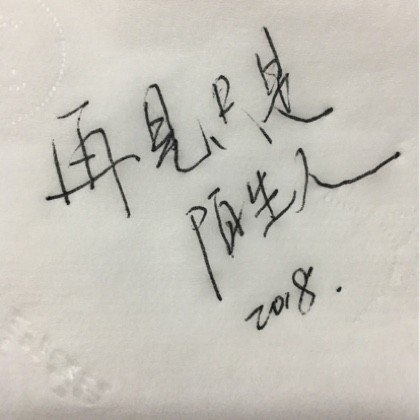 再見只是
陌生人
2018.